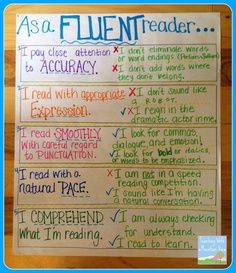 As a FLUENT reader...
I pay close attention
to ACCURACY.
X I don't eliminate words
or word endings.
X I don't add words where
they don't belong.
I read with appropriate
Expression.
X I don't sound like
a ROBOT.
X I reign in the
dramatic actor in me.
I read SMOOTHLY,
with careful regard
to PUNCTUATION.
✓ I look for commas,
dialogue, and emotion!
✓ I look for bold or italics,
or words to be emphasized.
I read with a
natural PACE.
X I am not in a speed
reading competition.
✓ I sound like I'm having
a natural conversation.
I COMPREHEND
what I'm reading.
✓ I am always checking
for understanding.
✓ I read to learn.
Teaching With a
Mountain View